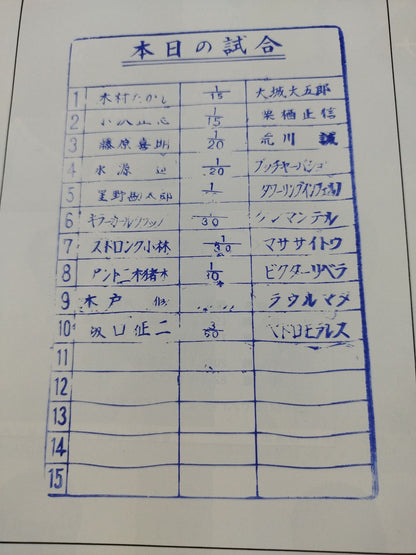 本日の試合
1 木村たかし 1/15 大城大五郎
2 小沢正志 1/15 栗栖正信
3 藤原喜明 1/20 荒川 誠
4 永源 1/20 ブッチャーバショー
5 星野勘太郎 タワーリングインフェルノ
6 キラーカールクラップ 30 ケンマンテル
7 ストロング小林 30 マササイトウ
8 アントニオ猪木 1/10 ビクターリベラ
9 木戸 修 ラウルマタ
10 坂口征二 3/60 ペドロモラレス
11
12
13
14
15